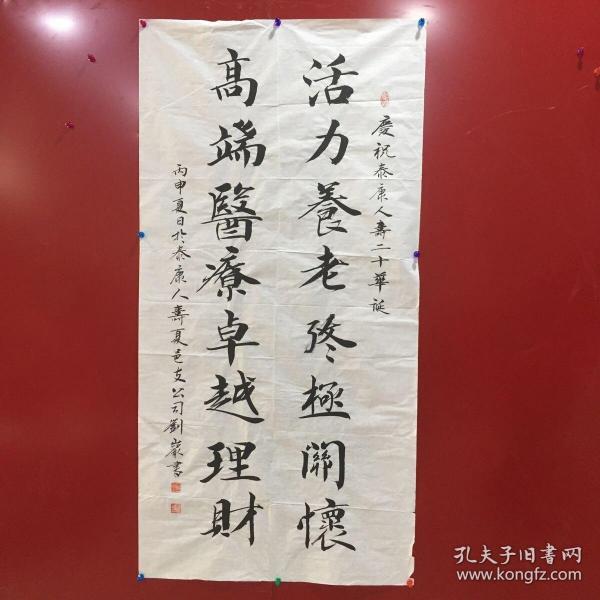 慶祝泰康人壽二十華誕
活力養老終極關懷
高端醫療卓越理財
丙申夏日於泰康人壽夏邑支公司劉巖書
孔夫子旧书网
www.kongfz.com